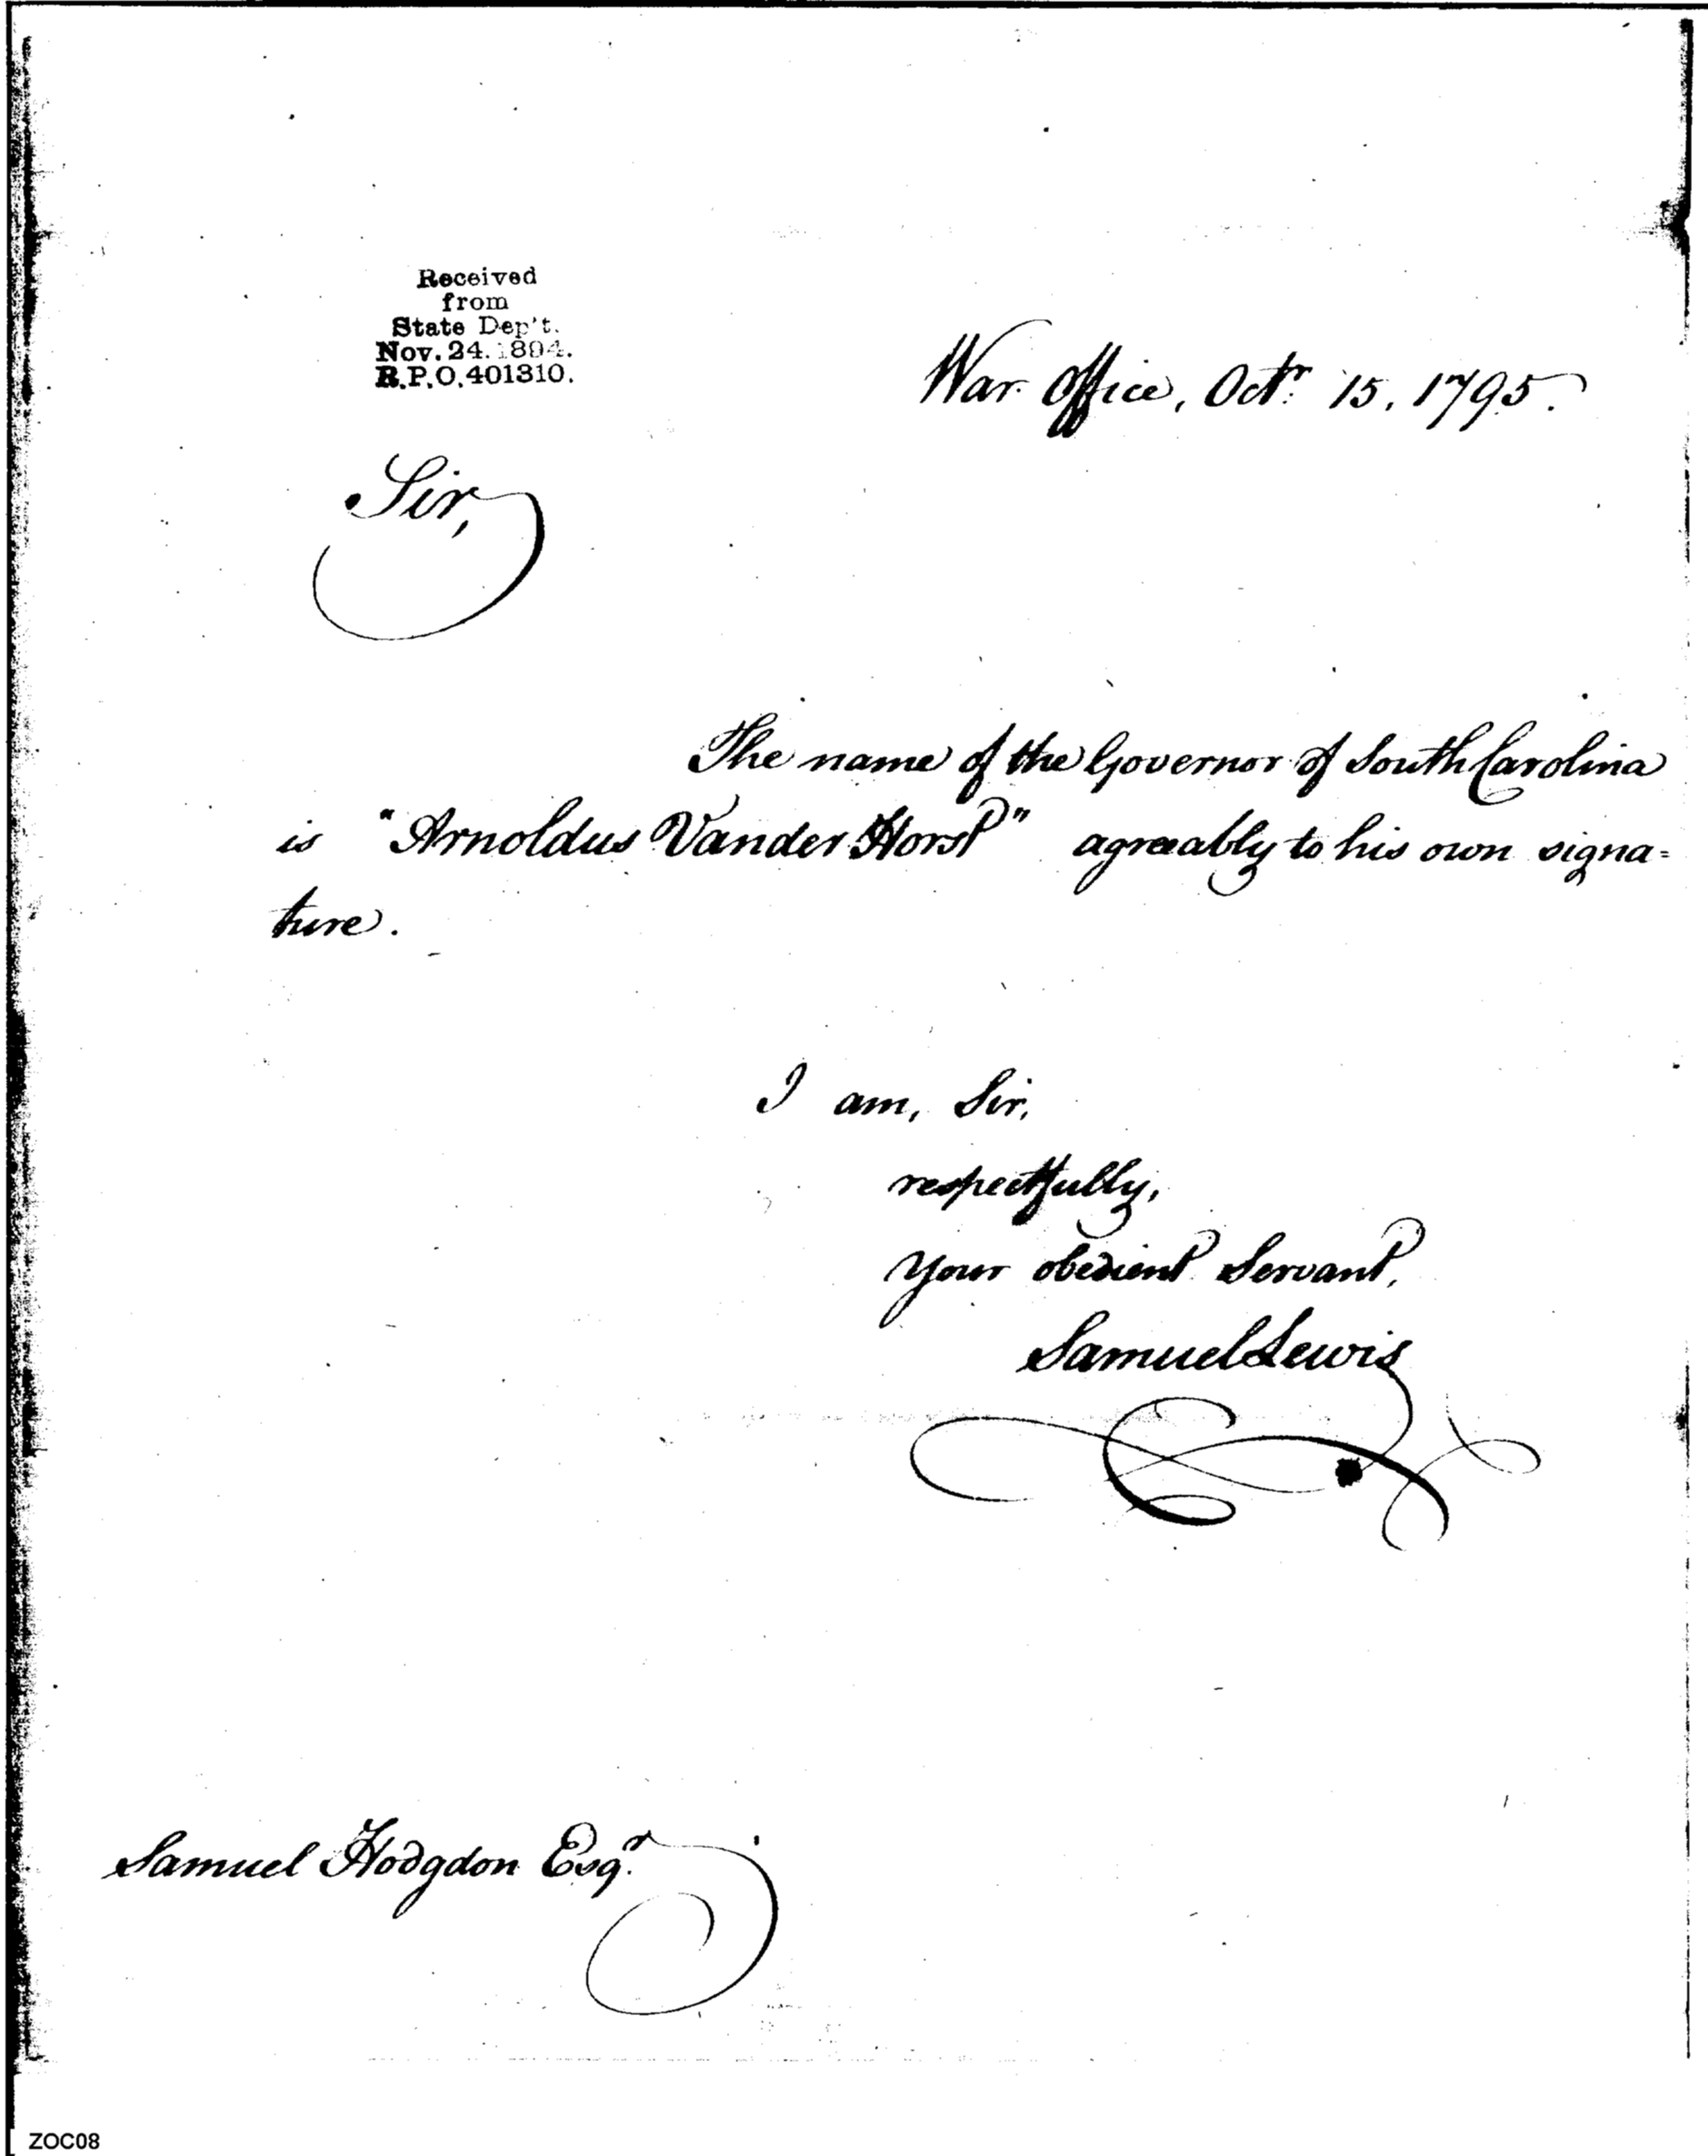 Received
from
State Dep't.
Nov. 24. 1894.
R.P.O. 401310.
War Office, Octr. 15, 1795.
Sir,
The name of the Governor of South Carolina
is "Arnoldus Vander Horst" agreeably to his own signa=
ture.
I am, Sir,
respectfully,
Your obedient Servant,
Samuel Lewis
Samuel Hodgdon Esqr.
ZOC08